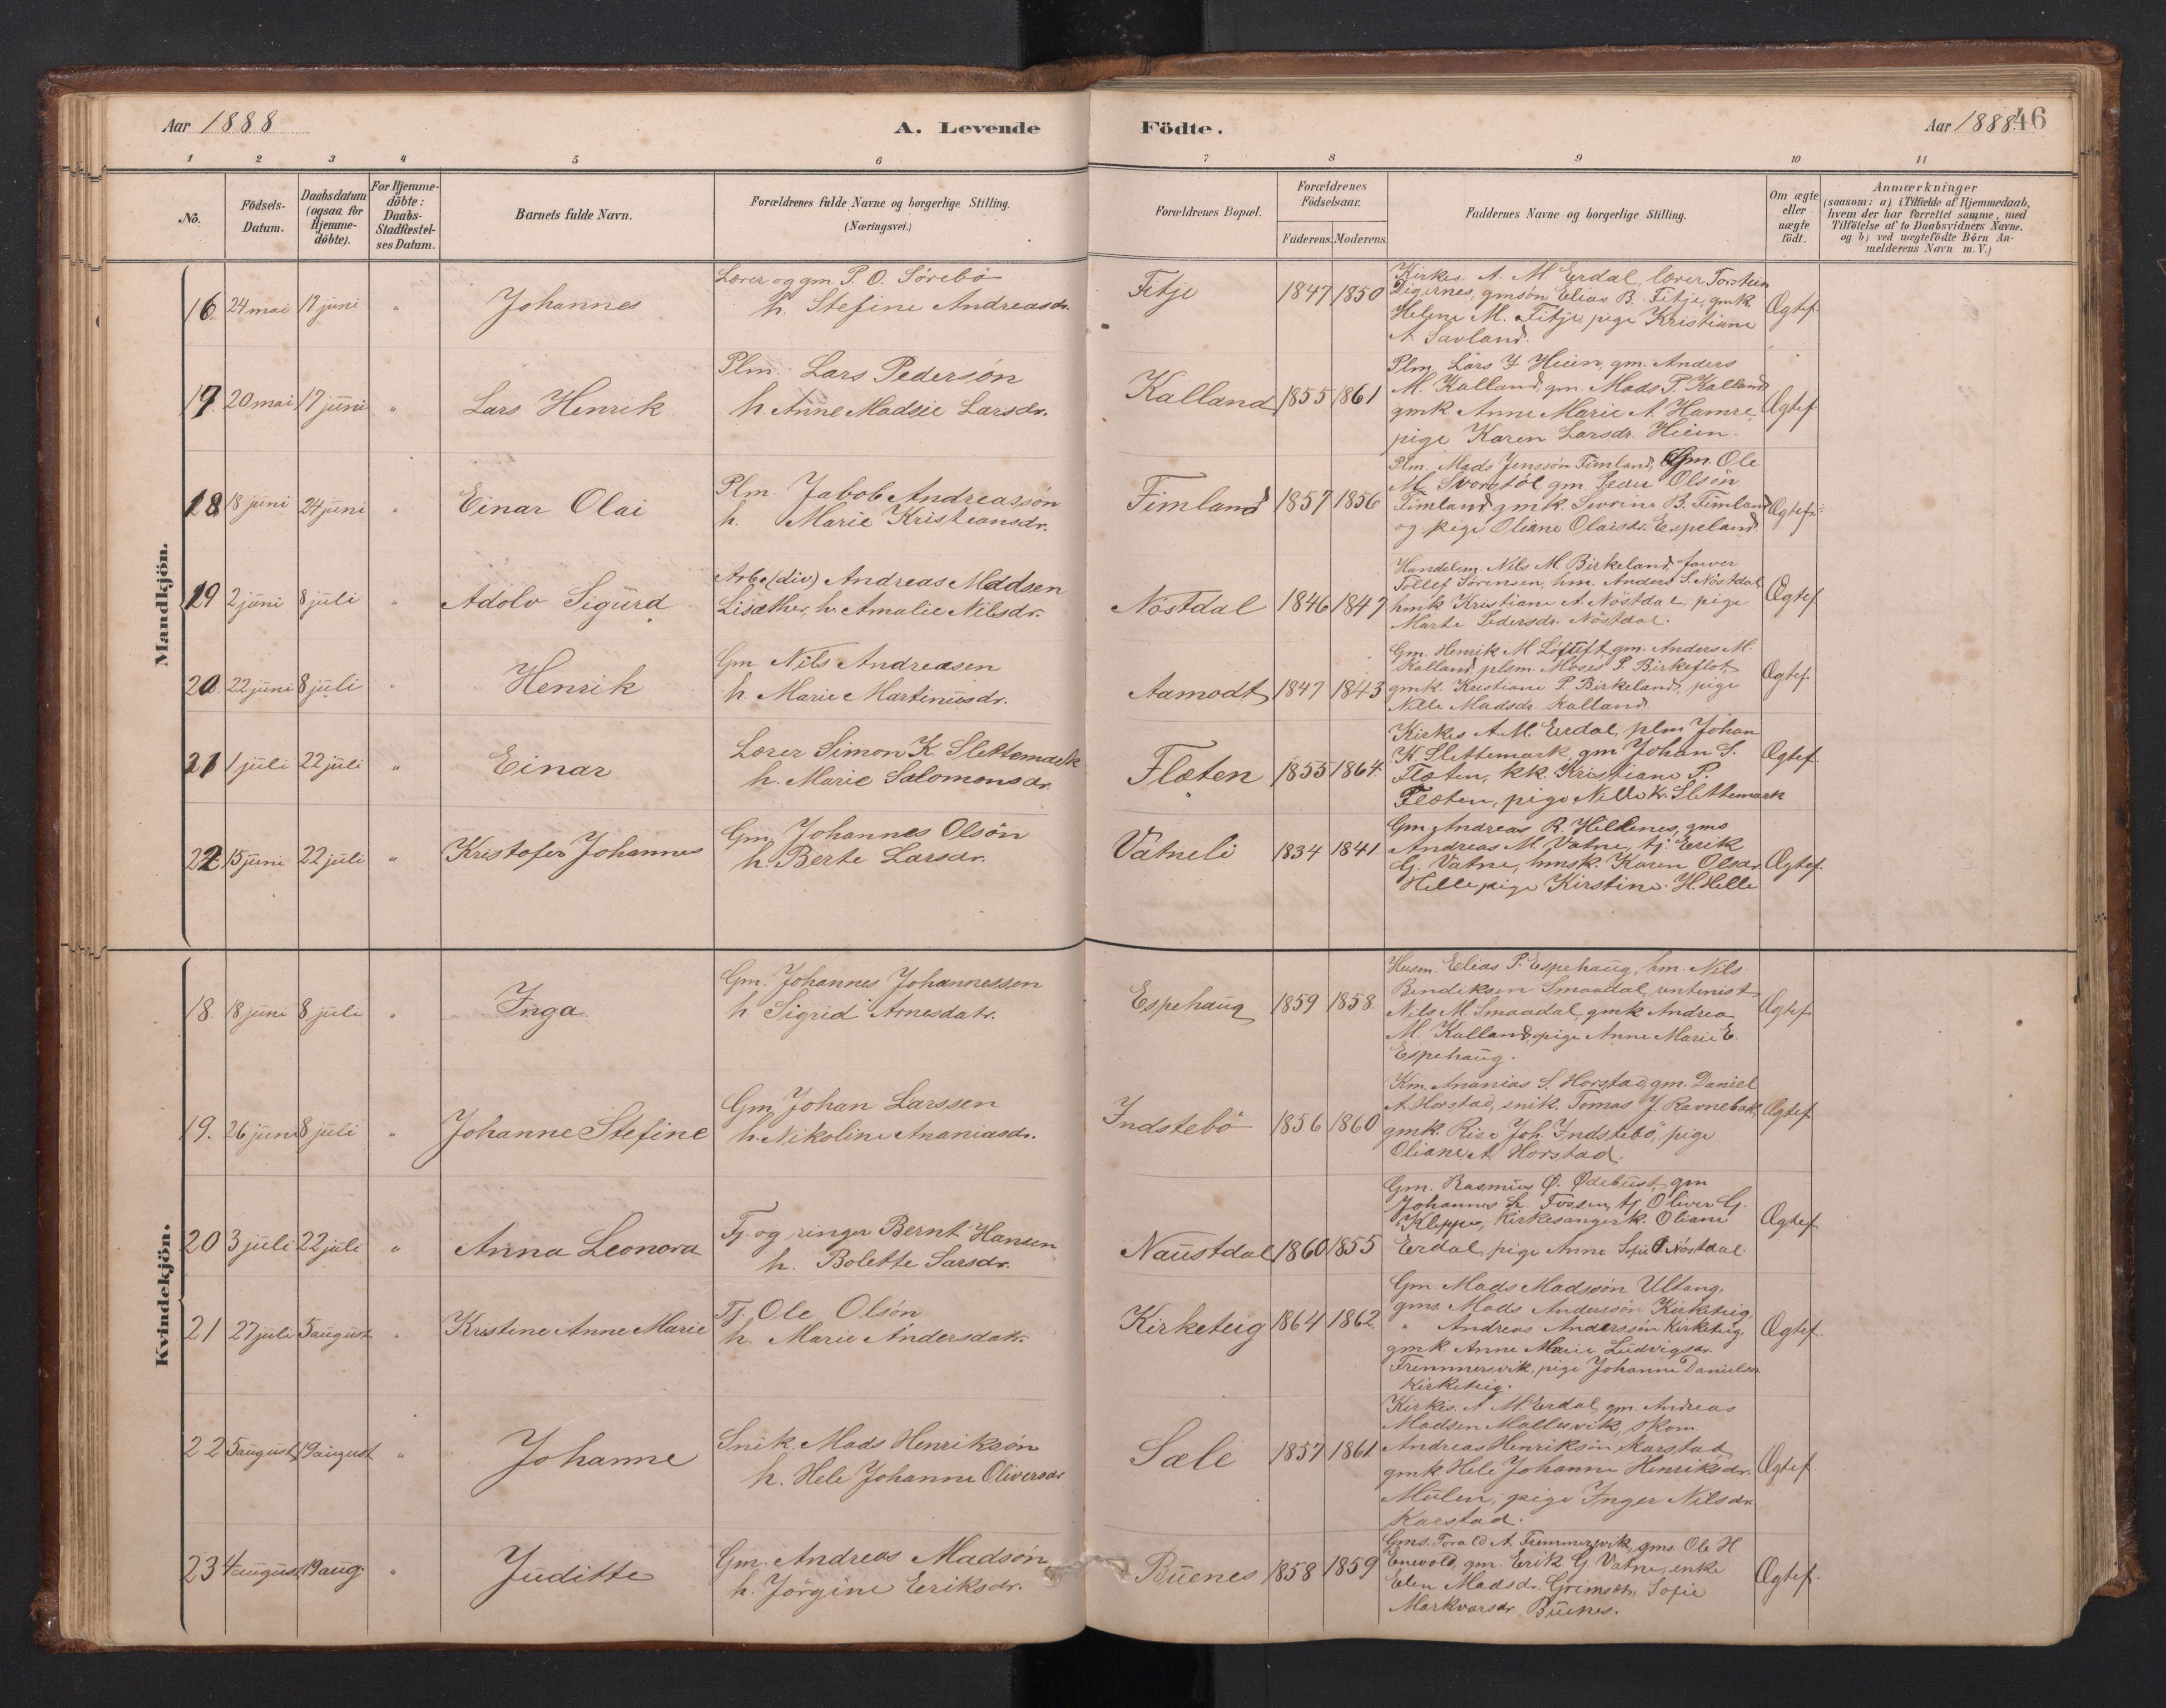 Aar 1888
A. Levende
Födte.
Aar 1888.
46
1
2
3
4
5
6
7
8
9
10
11
No.
Födsels-
Datum.
Daabsdatum
(ogsaa for
Hjemme-
döbte).
For Hjemme-
döbte:
Daabs-
Stadfæstel-
ses Datum.
Barnets fulde Navn.
Forældrenes fulde Navne og borgerlige Stilling.
(Næringsvei.)
Forældrenes Bopæl.
Forældrenes
Födselsaar.
Faderens.
Moderens.
Faddernes Navne og borgerlige Stilling.
Om ægte
eller
uægte
födt.
Anmærkninger
(saasom: a) i Tilfælde af Hjemmedaab,
hvem der har forrettet samme, med
Tilföielse af to Daabsvidners Navne.
og b) ved uægtefödte Börn An-
melderens Navn m. V.)
Mandkjön.
16 24 mai 17 juni " Johannes
Lærer og gm. P. O. Sörebö
h. Stefine Andreasdr.
Fitje 1847 1850
Kirkes. A. M. Erdal, lærer Torstein
Digernes, gmsön Elias B. Fitje, gmk
Helene M. Fitje, pige Kristiane
A. Savland.
Ægtef.
17. 20 mai 17 juni " Lars Henrik
Plm. Lars Pedersön
h. Anne Madsie Larsdr.
Kalland 1855 1861
Plm. Lars J Heien, gm. Anders
M. Kalland, gm. Mads P. Kalland
gmk Anne Marie A. Hamre,
pige Karen Larsdr. Heien.
Ægtef.
18 18 juni 24 juni " Einar Olai
Plm. Jakob Andreassön
h. Marie Kristiansdr.
Fimland 1857 1856
Plm. Mads Jenssön Fimland, Gm. Ole
M. Svorstöl gm. Peder Olsön
Fimland gmk. Severine B. Fimland
og pige Oliane Olaisdr. Espeland.
Ægtef.
19 2 juni 8 juli " Adolv Sigurd
Arb. (div) Andreas Madsen
Lisæther, h. Amalie Nilsdr.
Nöstdal 1846 1847
Handelsm. Nils M. Birkeland, farver
Tollef Sörensen, hm. Anders S. Nöstdal
hmk Kristiane A. Nöstdal, pige
Marte Pedersdr. Nöstdal.
Ægtef
20. 22 juni 8 juli " Henrik
Gm. Nils Andreasen
h. Marie Martinusdr.
Aamodt 1847 1843
Gm. Henrik M. Löftuft, gm. Anders M.
Kalland, plsm. Moses P. Birkeflot,
gmk. Kristiane P. Birkeland, pige
Nille Madsdr. Kalland.
Ægtef.
21 1 juli 22 juli " Einar
Lærer Simon K. Slettemark
h. Marie Salomonsdr.
Flæten 1855 1864.
Kirkes A. M. Erdal, plm Johan
K. Slettemark, gm Johan S.
Flæten, kk. Kristiane P.
Flæten, pige Nille K. Slettemark
Ægtef
22. 15 juni 22 juli " Kristofer Johannes
Gm. Johannes Olsön
h. Berte Larsdr.
Vatneli 1834 1841
Gm. Andreas R. Hellenes, gms
Andreas M. Vatne, tj. Erik
G. Vatne, hmsk. Karen Olsdr.
Helle, pige Kirstine H. Helle
Ægtef.
Kvindekjön.
18. 18 juni 8 juli " Inga
Gm. Johannes Johannessen
h. Sigrid Arnesdatr.
Espehaug 1859 1858.
Husm. Elias P. Espehaug, hm. Nils
Bendiksen Smaadal, ventenist,
Nils M. Smaadal, gmk Andrea
M. Kalland, pige Anne Marie E.
Espehaug.
Ægtef
19. 26 juni 8 juli " Johanne Stefine
Gm. Johan Larssen
h. Nikoline Ananiasdr.
Indstebö 1856 1860
Km. Ananias S. Horstad, gm. Daniel
A. Horstad, snik. Tomas J. Ravnebak,
gmk. Rise Joh. Indstebö, pige
Oliane A. Horstad.
Ægtef
20 3 juli 22 juli " Anna Leonora
Tj. og ringer Bernt Hansen
h. Bolette Larsdr.
Naustdal 1860 1855
Gm. Rasmus Ø. Ödebust, gm
Johannes L. Fossen, tj. Oliver G.
Kleppe, kirkesangerk. Oliane
Erdal, pige Anne Sofie P. Nöstdal.
Ægtef
21 27 juli 5 august " Kristine Anne Marie
Tj. Ole Olsön
h. Marie Andersdatr.
Kirketeig 1864 1862.
Gm. Mads Madssön Ullang,
gms. Mads Anderssön Kirketeig,
" Andreas Anderssön Kirketeig.
gmk. Anne Marie Ludvigsdr.
Fremmersvik, pige Johanne Danielsdr
Kirketeig.
Ægtef.
22 5 august 19 august " Johanne
Snik. Mads Henriksön
h. Hele Johanne Oliversdr
Sæle 1857 1861.
Kirkes. A. M. Erdal, gm. Andreas
Madsen Mallesvik, skom.
Andreas Henriksön Karstad,
gmk Hele Johanne Henriksdr.
Mulen, pige Inger Nilsdr.
Karstad.
Ægtef
23 4 august 19 aug. " Juditte
Gm. Andreas Madsön
h. Jörgine Eriksdr.
Buenes 1858 1859
Gms. Tora O A. Fremmersvik, gms. Ole H
Enevold, gm. Erik G. Vatne, enke
Elen Madsdr. Grimset, Sofie
Markvarsdr. Buenes.
Ægtef.